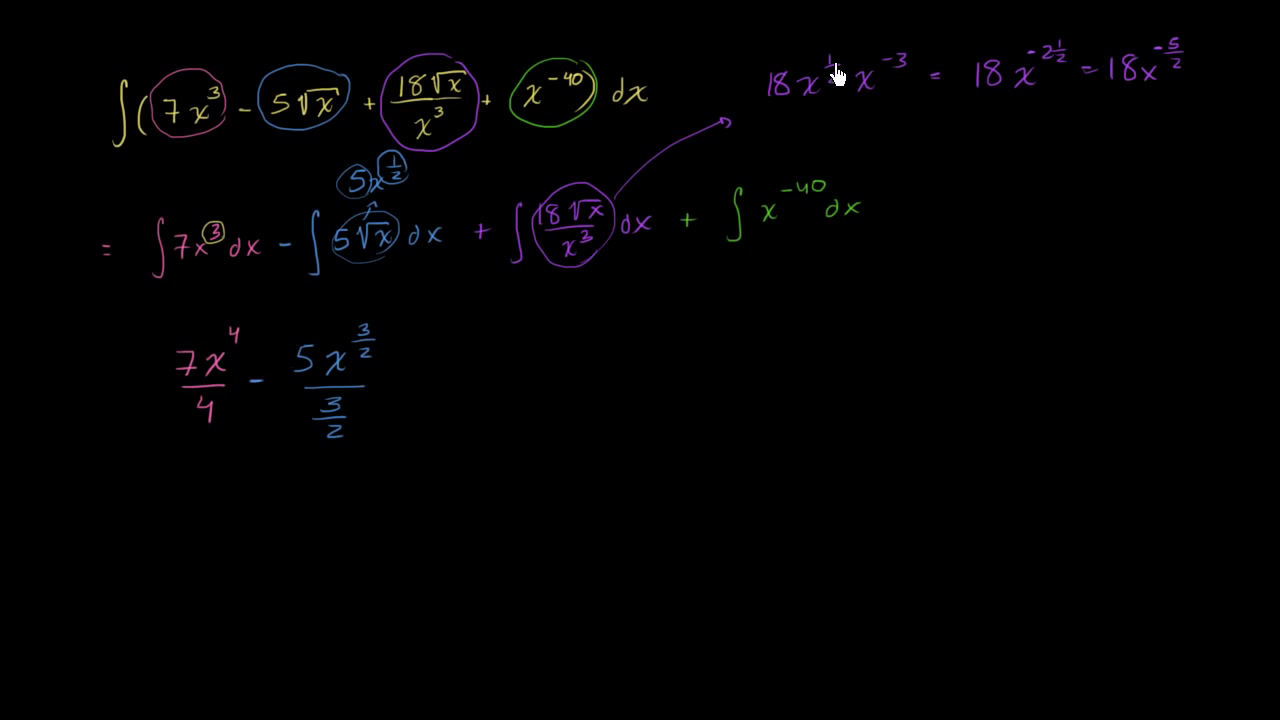 ∫(7x³ - 5√x + 18√x/x³ + x⁻⁴⁰) dx
18x^(1/ x⁻³ = 18x^(-2 1/2) = 18x^(-5/2)
5x^(1/2)
= ∫7x³dx - ∫5√x dx + ∫18√x/x³ dx + ∫x⁻⁴⁰dx
7x⁴/4 - 5x^(3/2)/(3/2)